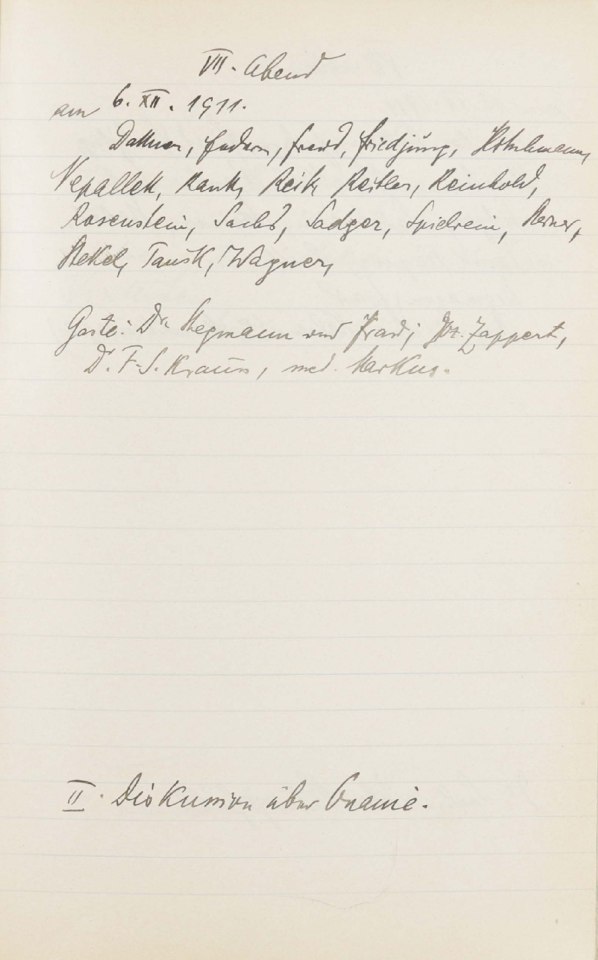 VII. Abend
am 6. XII. 1911.
Dattner, Federn, Freud, Friedjung, Hitschmann,
Nepallek, Rank, Reik, Reitler, Reinhold,
Rosenstein, Sachs, Sadger, Spielrein, Steiner,
Stekel, Tausk, Wagner,
Gäste: Dr. Stegmann und Frau; Dr. Zappert,
Dr. F. S. Krauss, med. Markus.
II. Diskussion über Onanie.